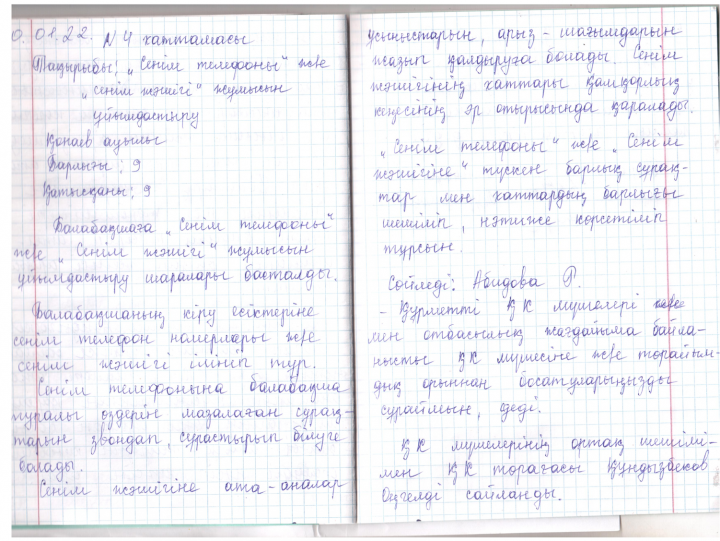 0.01.22. №4 хаттамасы
Тақырыбы: „Сенім телефоны" және
„сенім жәшігі" жұмысын
ұйымдастыру
Қонаев ауылы
Барлығы: 9
Қатысқаны: 9
Балабақшаға „Сенім телефоны"
және „Сенім жәшігі" жұмысын
ұйымдастыру шаралары басталды.
Балабақшаның кіру есіктеріне
сенім телефон номерлары және
сенім жәшігі ілініп тұр.
Сенім телефонына балабақша
туралы өздерін мазалаған сұрақ-
тарын звондап, сұрастырып білуге
болады.
Сенім жәшігіне ата-аналар
ұсыныстарын, арыз-шағымдарын
жазып қалдыруға болады. Сенім
жәшігінің хаттары қамқорлық
кеңесінің әр отырысында қаралады.
„Сенім телефоны" және „Сенім
жәшігіне" түскен барлық сұрақ-
тар мен хаттардың барлығы
шешіліп, нәтиже көрсетіліп
тұрсын.
Сөйледі: Абидова Г.
- Құрметті ҚК мүшелері
мен отбасылық жағдайыма байла-
нысты ҚК мүшесіне және төрайым-
дық орыннан босатуларыңызды
сұраймын, деді.
ҚК мүшелерінің ортақ шешімі-
мен ҚК төрағасы Құндызбеков
сайланды.